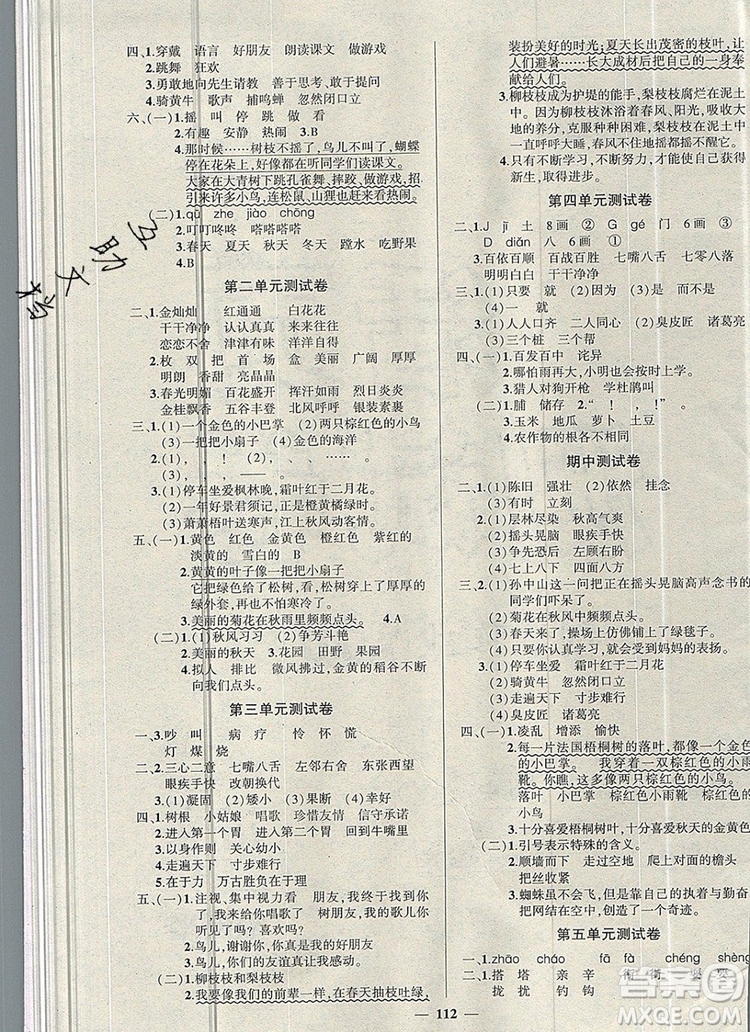 四、1.穿戴 语言 好朋友 朗读课文 做游戏
2.跳舞 狂欢
3.勇敢地向先生请教 善于思考、敢于提问
4.骑黄牛 歌声 捕鸣蝉 忽然闭口立
六、(一)1.摇 叫 停 跳 做 看
2.有趣 安静 热闹 3.B
4.窗外十分安静,树枝不摇了,鸟儿不叫了,蝴蝶
停在花朵上,好像都在听同学们读课文。
大家在大青树下跳孔雀舞、摔跤、做游戏,招
引来许多小鸟,连松鼠、山狸也赶来看热闹。
(二)1.qū zhe jiào chōng
2.叮叮咚咚 嗒嗒嗒嗒
3.春天 夏天 秋天 冬天 蹚水 吃野果
4.B
第二单元测试卷
二、1.金灿灿 红通通 白花花
干干净净 认认真真 来来往往
恋恋不舍 津津有味 洋洋得意
2.枚 双 把 首 场 盒 美丽 广阔 厚厚
明朗 香甜 亮晶晶
3.春光明媚 百花盛开 挥汗如雨 烈日炎炎
金桂飘香 五谷丰登 北风呼呼 银装素裹
三、1.(1)一个金色的小巴掌 (2)两只棕红色的小鸟
(3)一把把小扇子 (4)金色的海洋
3.(1)停车坐爱枫林晚,霜叶红于二月花。
(2)一年好景君须记,正是橙黄橘绿时。
(3)萧萧梧叶送寒声,江上秋风动客情。
五、(一)1.黄色 红色 金黄 橙红色 紫红的
淡黄的 雪白的 B
2.黄黄的叶子像一把把小扇子
它把绿色给了松树,松树就穿上了厚厚的
绿外套,再也不怕寒冷了。
3.美丽的菊花在秋雨里频频点头。 4.A
(二)1.(1)秋风习习 (2)争芳斗艳
2.美丽的秋天 3.花园 田野 果园
4.拟人 排比 微风拂过,金黄的稻谷不断
向我们点头。
第三单元测试卷
一、3.吵 叫 病 疗 怜 怀 慌
灯 煤 烧
二、2.三心二意 七嘴八舌 左邻右舍 东张西望
眼疾手快 改朝换代
3.(1)凝固 (2)矮小 (3)果断 (4)幸好
四、1.树根 小姑娘 唱歌 珍惜友情 信守承诺
2.进入第一个胃 进入第二个胃 回到牛嘴里
3.以身作则 关心幼小
4.走遍天下 寸步难行
5.在于力 万古胜负在于理
五、(一)1.注视、集中视力看 朋友,还记得
你以前给我们唱歌了吗? 喜欢吗?
3.鸟儿,谢谢你,你是我最好的朋友!
4.鸟儿,你们的友谊真让我感动。
(二)1.柳枝枝和梨枝枝
2.我要像我们的前辈一样,在春天抽枝吐绿,
装扮美好的时光;夏天长出茂密的枝叶,
人们避暑……长大成材后把自己的一身奉
献给人们。
3.柳枝枝成为护堤的能手,梨枝枝腐烂在泥土
中。因为柳枝枝沐浴着春风、阳光,吮吸着大
地的芬芳,
4.只有不断学习,不断努力,我们才能不断
取得进步。
第四单元测试卷
二、1.J jǐ 土 8画 ② G gé 门 6画 ③
D diǎn 八 6画 ①
3.百依百顺 百战百胜 七嘴八舌 七零八落
明明白白 干干净净
三、1.(1)只要 就 (2)因为 (3)不是 是
(4)一 就
3.(1)人人口齐 二人同心 (2)臭皮匠 诸葛亮
(3)三个桩 三个帮
四、(一)1.百发百中 诧异
2.哪怕雨再大,小明也坚持去上学。
3.猎人对狗开枪 学杜鹃叫
(二)1.脯 储存
3.玉米 地瓜 萝卜 土豆
4.农作物的根各不相同
期中测试卷
二、1.(1)陈旧 强壮 (2)依然 挂念
(3)有时 立刻
2.(1)层林尽染 秋高气爽
(2)摇头晃脑 眼疾手快
(3)争先恐后 左顾右盼
(4)七上八下 四面八方
三、2.(1)孙中山这一问把正在摇头晃脑高声念书的
同学们吓呆了。
(2)菊花在秋雨中频频点头。
(3)春天来了,操场上仿佛铺上了绿毯子。
(4)只要你认真学习,就会受到妈妈的表扬。
3.(1)停车坐爱 霜叶红于二月花
(2)骑黄牛 忽然闭口立
(3)走遍天下 寸步难行
(4)臭皮匠 诸葛亮
四、(一)1.凌乱 增添 愉快
2.每一片法国梧桐树的落叶,都像一个金色
的小巴掌。 我穿着一双棕红色的小雨
靴。你瞧,这多像两只棕红色的小鸟。
落叶 小巴掌 小雨靴 小鸟
3.十分喜爱梧桐树叶,十分喜爱秋天的金黄色
(二)1.引号表示特殊的含义。
2.顺墙而下 走过空地 爬上对面的檐头
把丝收紧
3.蜘蛛虽不会飞,但是靠自己的执着与勤奋
把网结在空中,创造了一个奇迹。
第五单元测试卷
一、1.zhāo cháo fā fà chéng shèng
二、1.搭 塔 亲 辛
拢 扰 钓 钩
112
互助文档
答案圈
MXQE.COM